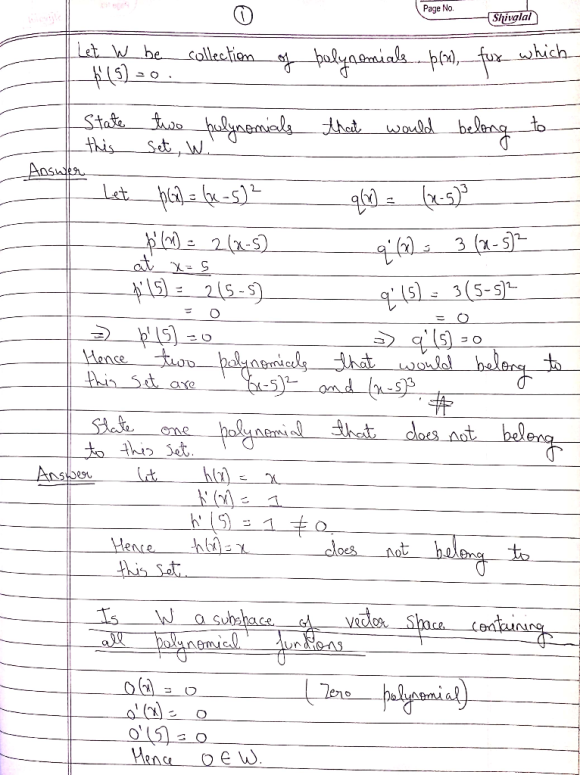 ①
Page No.
Shivalal
Let W be collection of polynomials p(x), for which
p'(5) = 0.
State two polynomials that would belong to
this set, W.
Answer
Let p(x) = (x-5)² q(x) = (x-5)³
p'(x) = 2(x-5) q'(x) = 3(x-5)²
at x = 5
p'(5) = 2(5-5) q'(5) = 3(5-5)²
= 0 = 0
⇒ p'(5) = 0 ⇒ q'(5) = 0
Hence two polynomials that would belong to
this set are (x-5)² and (x-5)³. #
State one polynomial that does not belong
to this set.
Answer Let h(x) = x
h'(x) = 1
h'(5) = 1 ≠ 0
Hence h(x) = x does not belong to
this set.
Is W a subspace of vector space containing
all polynomial functions
0(x) = 0 (Zero polynomial)
0'(x) = 0
0'(5) = 0
Hence 0 ∈ W.